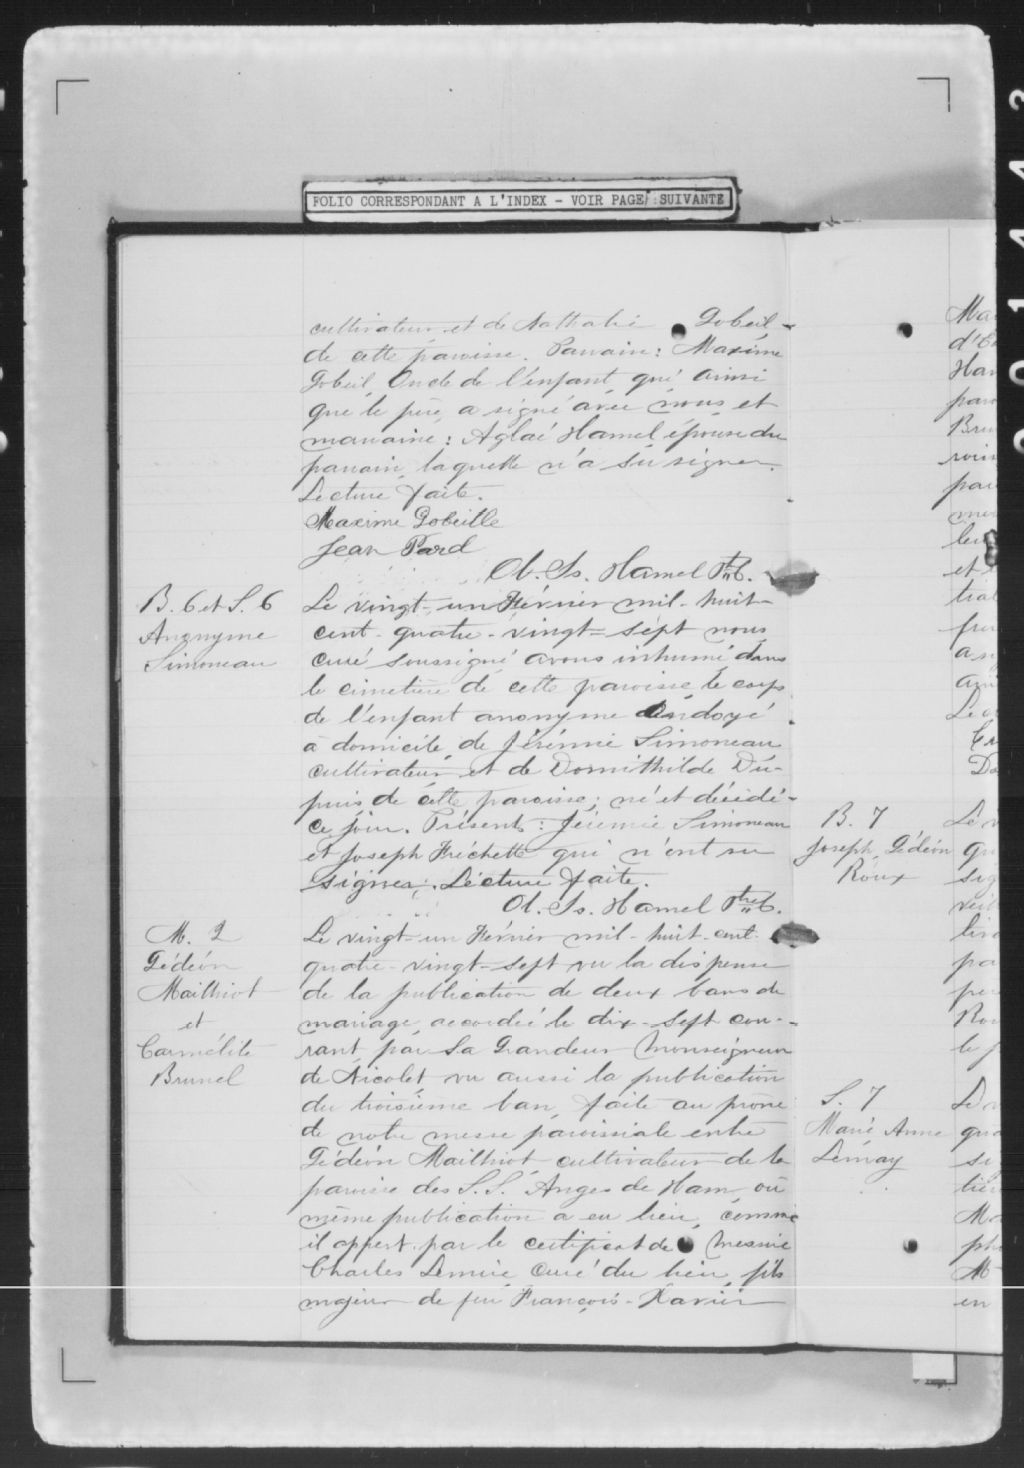 FOLIO CORRESPONDANT A L'INDEX - VOIR PAGE SUIVANTE
cultivateur et de Nathalie Gobeil
de cette paroisse. Parrain: Maxime
Gobeil, Oncle de l'enfant qui ainsi
que le père a signé avec nous et
marraine: Aglaé Hamel épouse du
parrain, laquelle n'a su signer.
Lecture faite.
Maxime Gobeille
Jean Pard
Hamel Ptre
B. 6 et S. 6
Anonyme
Simoneau
Le vingt-un Février mil-huit-
cent-quatre-vingt-sept nous
curé soussigné avons inhumé dans
le cimetière de cette paroisse le corps
de l'enfant anonyme ondoyé
à domicile de Jérémie Simoneau
cultivateur et de Domithilde Du-
puis de cette paroisse; né et décédé
ce jour. Présents: Jérémie Simoneau
et Joseph Fréchette qui n'ont su
signer. Lecture faite.
Hamel Ptre
M. 2
Gédéon
Mailhiot
et
Carmélite
Brunel
Le vingt-un Février mil-huit-cent-
quatre-vingt-sept vu la dispense
de la publication de deux bans de
mariage, accordée le dix-sept cou-
rant par Sa Grandeur Monseigneur
de Nicolet, vu aussi la publication
du troisième ban, faite au prône
de notre messe paroissiale entre
Gédéon Mailhiot cultivateur de la
paroisse des S.S. Anges de Ham, où
même publication a eu lieu, comme
il appert par le certificat de Messire
Charles Lemire, Curé du lieu, fils
majeur de feu François-Xavier
B. 7
Joseph Gédéon
Roux
S. 7
Marie Anne
Lemay